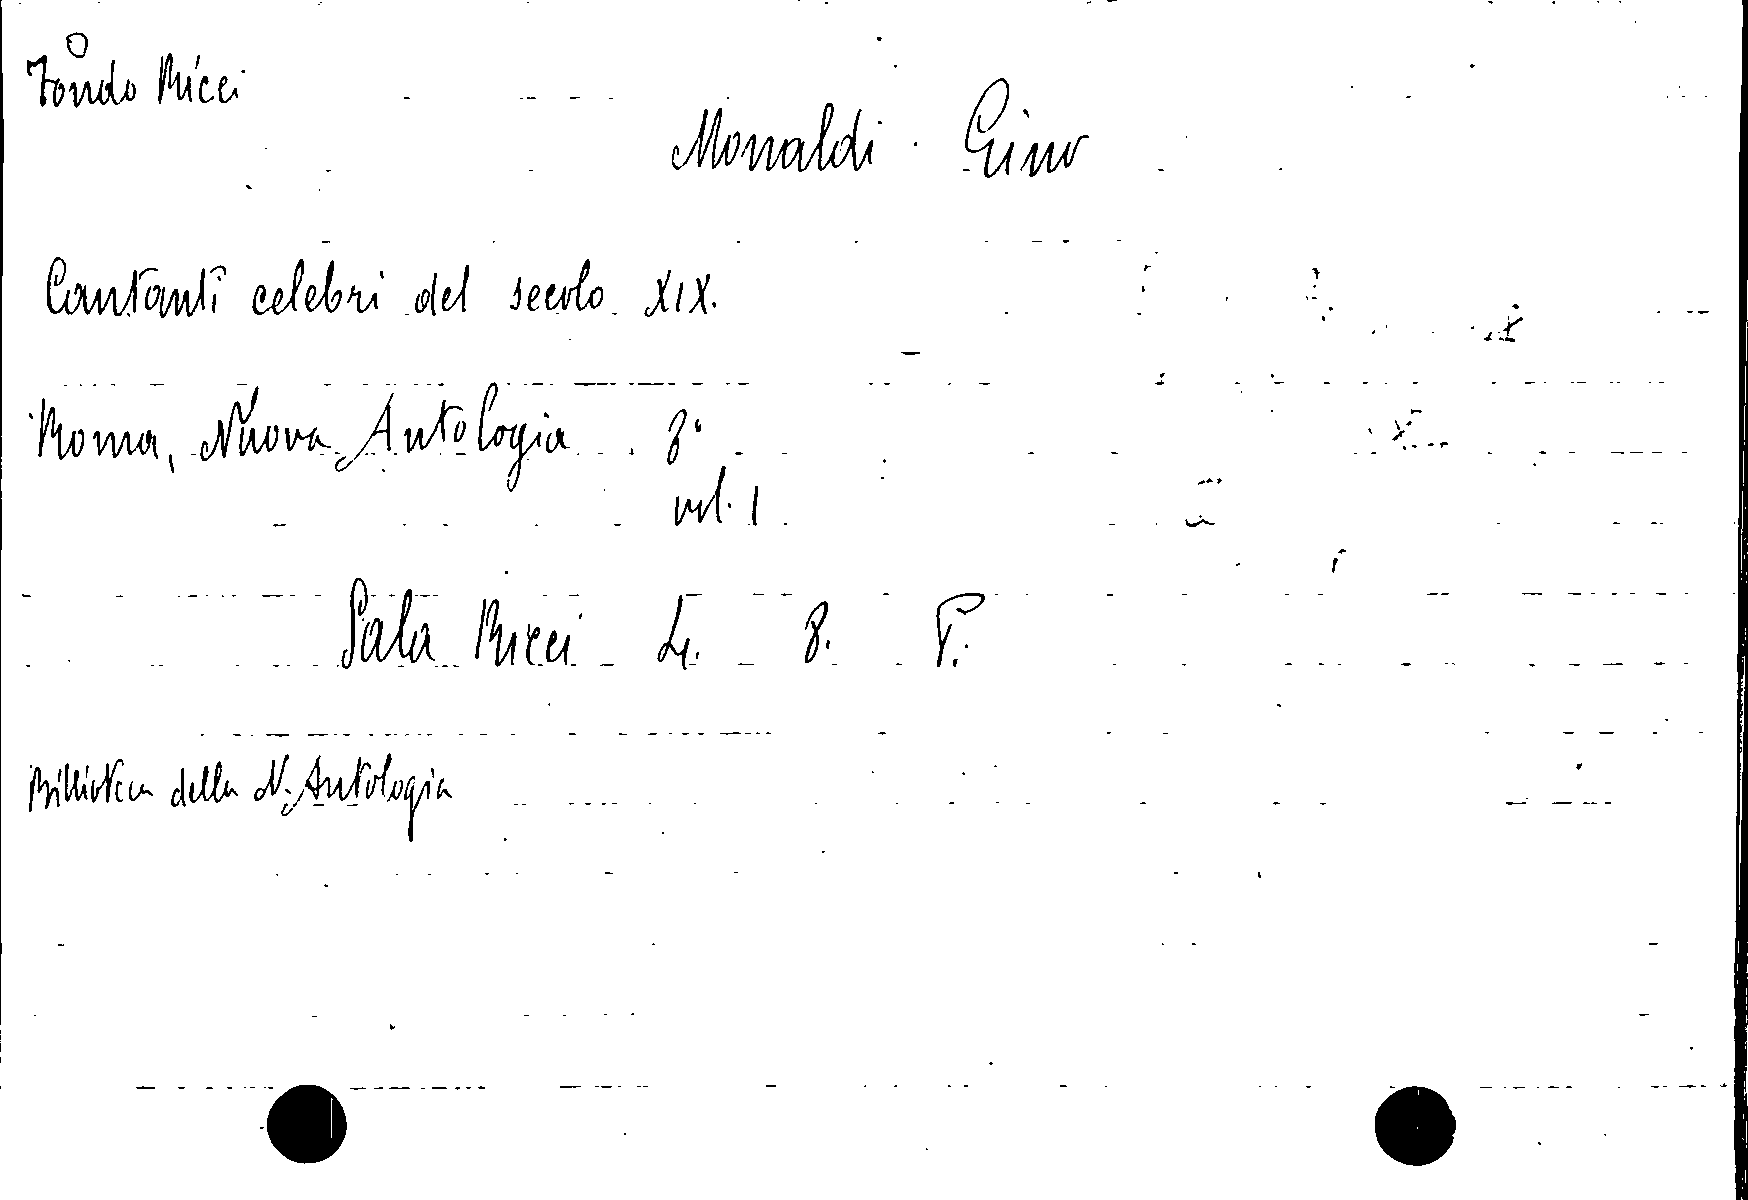 Fondo Ricci
Monaldi Gino
Cantanti celebri del secolo XIX.
Roma, Nuova Antologia 8°
vol. 1
Sala Ricci L. 8.
Biblioteca della N. Antologia